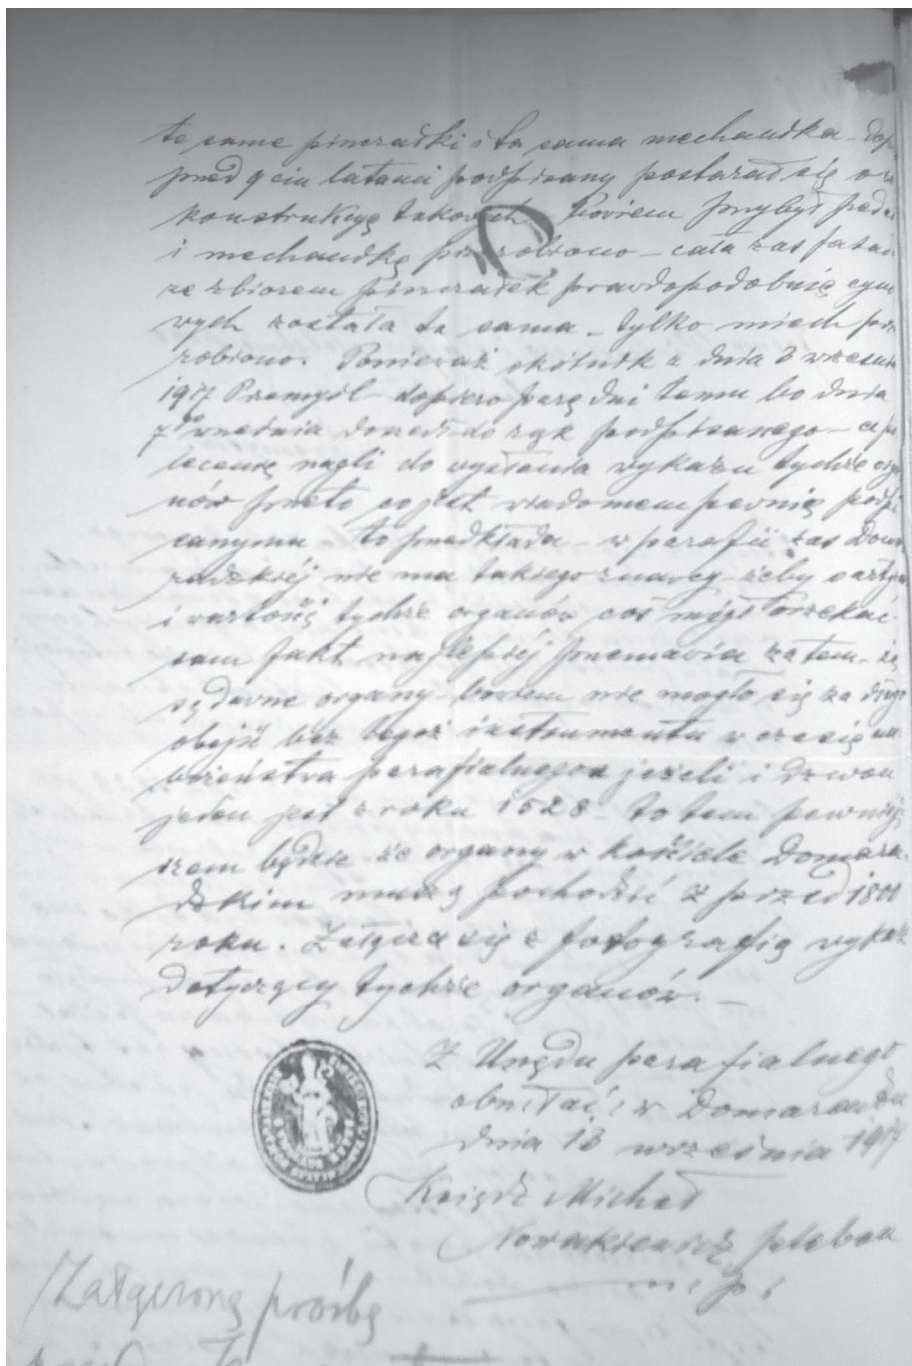 te same piszczałki i ta sama mechanika –
przed 9 ciu latami podpisany postarał się o
konstrukcyę takowych bowiem przybył
i mechanikę przerobiono – cała zaś
ze zbiorem piszczałek prawdopodobnie cyno
wych została ta sama – tylko miech prze
robiono. Ponieważ okólnik z dnia 3 września
1917 Przemyśl – dopiero parę dni temu bo dnia
7go września doszedł do rąk podpisanego –
lecenie nagli do wysłania wykazu tychże orga
nów przeto co jest wiadomem pewnie podpi
sanymu – to przedkłada – w parafii zaś Doma
radzkiéj nie ma takiego znawcy – żeby o
i wartości tychże organów coś mógł orzekać
sam fakt najlepiéj przemawia za tem – że
są dawne organy – bowiem nie mogło się za
obejść bez tegoż instrumentu w czasie na
bożeństwa parafialnego a jeżeli i dzwon
jeden jest z roku 1528 – to tem pewniéj
szem będzie że organy w kościele Domara-
dzkim muszą pochodzić z przed 1800
roku. Załącza się z fotografią wykaz
dotyczący tychże organów. –
Z Urzędu parafialnego
ob. łać. w Domaradzu
dnia 13 września 1917
Ksiądz Michał
Nowakiewicz pleban
mp.
Załączoną prośbę